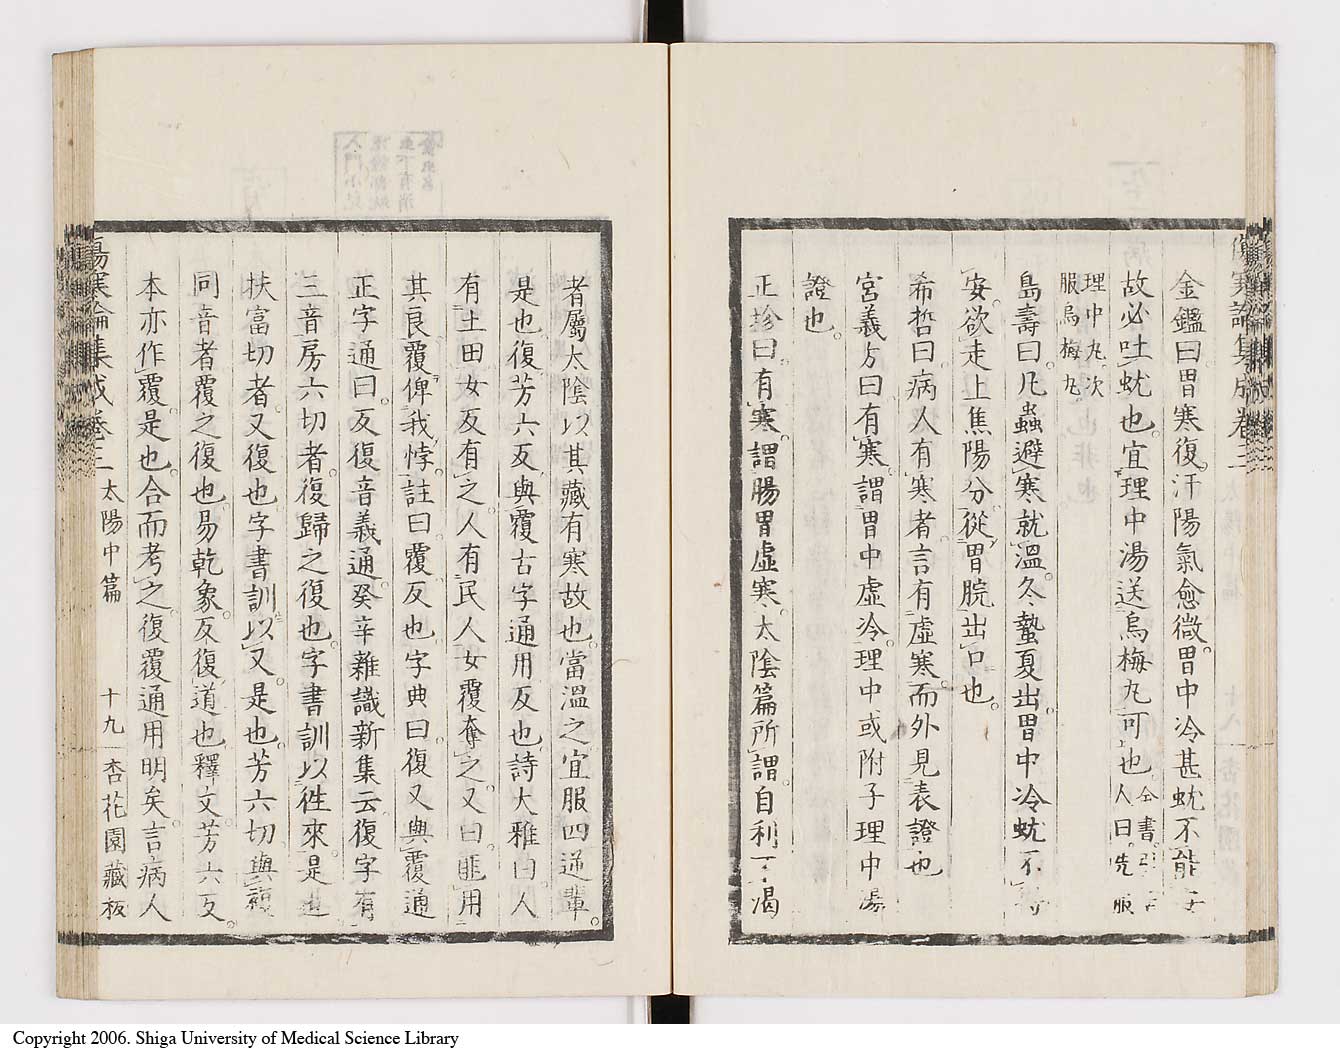 傷寒論集成卷三
金鑑曰胃寒復汗陽氣愈微胃中冷甚蚘不能
故必吐蚘也宜理中湯送烏梅九可也
人曰先服
理中九次
服烏梅九
島壽曰凡蟲避寒就溫冬蟄夏出胃中冷蚘不
安欲走上焦陽分從胃脘出口也
希哲曰病人有寒者言有虛寒而外見表證也
宮義方曰有寒謂胃中虛冷理中或附子理中湯
證也
正珍曰有寒謂腸胃虛寒太陰篇所謂自利不渴
者屬太陰以其藏有寒故也當溫之宜服四逆輩
是也復芳六反與覆古字通用反也詩大雅曰人
有土田女反有之人有民人女覆奪之又曰匪用
其良覆俾我悖註曰覆反也字典曰復又與覆通
正字通曰反復音義通癸辛雜識新集云復字有
三音房六切者復歸之復也字書訓以徃來是也
扶富切者又復也字書訓以又是也芳六切與覆
同音者覆之復也易乾象反復道也釋文芳六反
本亦作覆是也合而考之復覆通用明矣言病人
傷寒論集成卷三 太陽中篇 十九 杏花園藏板